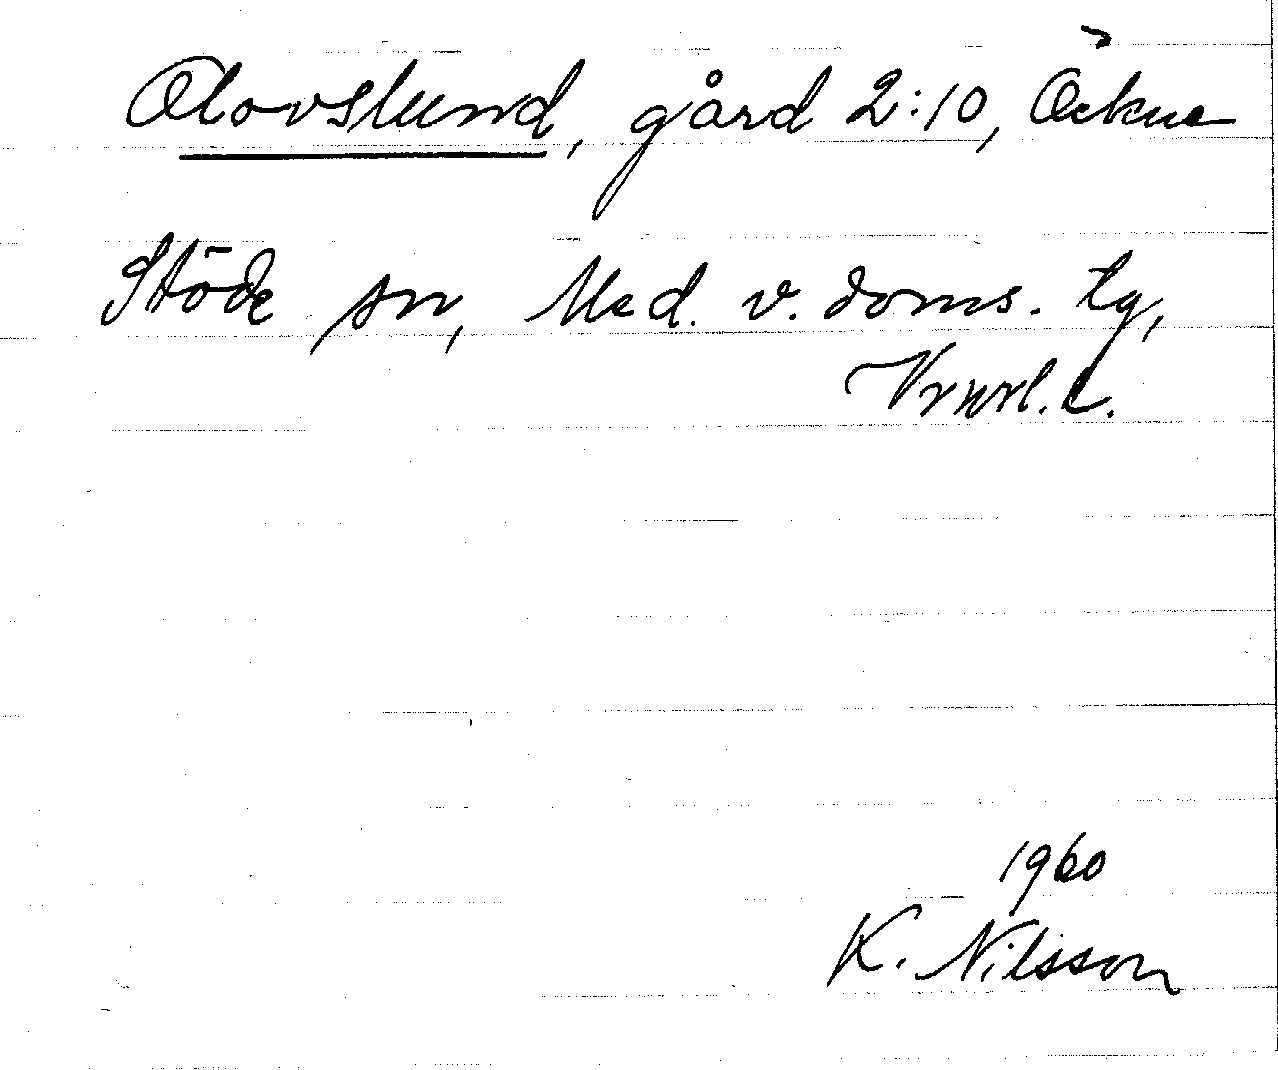 Olovslund, gård 2:10, Öckne
Stöde sn, Med. v. doms. tg,
Vrnrl. l.
1960
K. Nilsson